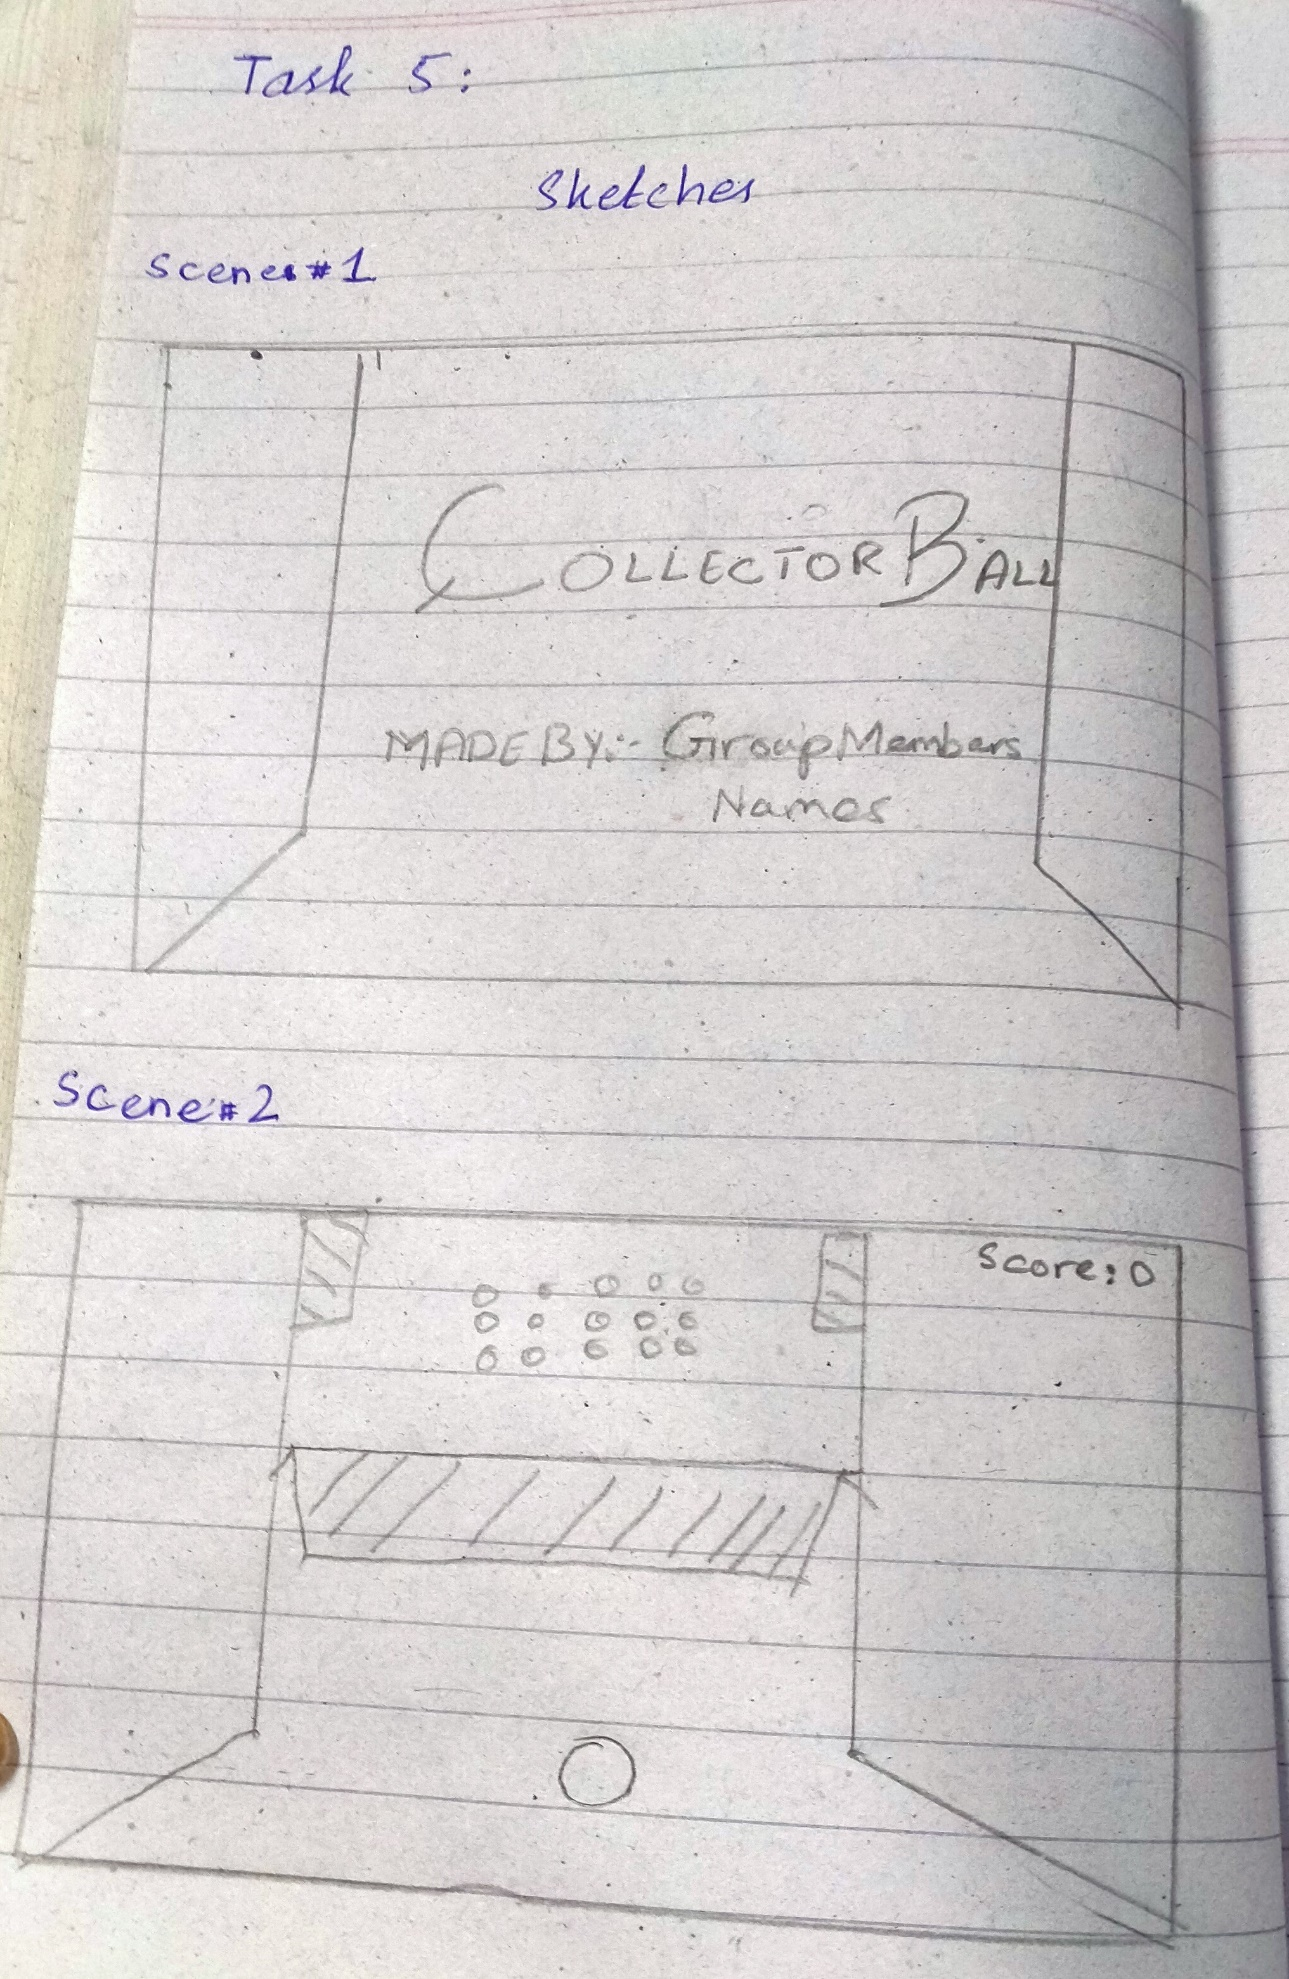 Task 5:
Sketches
Scenes#1
COLLECTOR BALL
MADE BY:- Group Members
Names
Scene#2
Score: 0